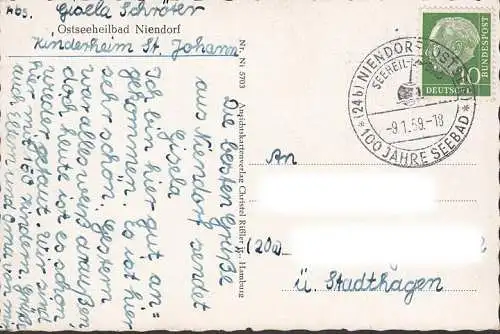 Abs. Gisela Schröter
Ostseeheilbad Niendorf
Kinderheim St. Johann
Nr. Ni 5703
Ansichtskartenverlag Christel Rißler Hamburg
Die besten Grüße
aus Niendorf sendet
Gisela
Ich bin hier gut an-
gekommen. Es ist hier
sehr schön. Gestern
war alles weiß draußen
doch heute ist es schon
wieder getaut. Wir sind
hier mit 150 Kindern. Grüßt
auch
Oma von mir
(24b) NIENDORF (OSTSEE)
SEEHEIL-
-9.1.59.-18
* 100 JAHRE SEEBAD *
DEUTSCHE BUNDESPOST
10
An
(20a)
ü. Stadthagen